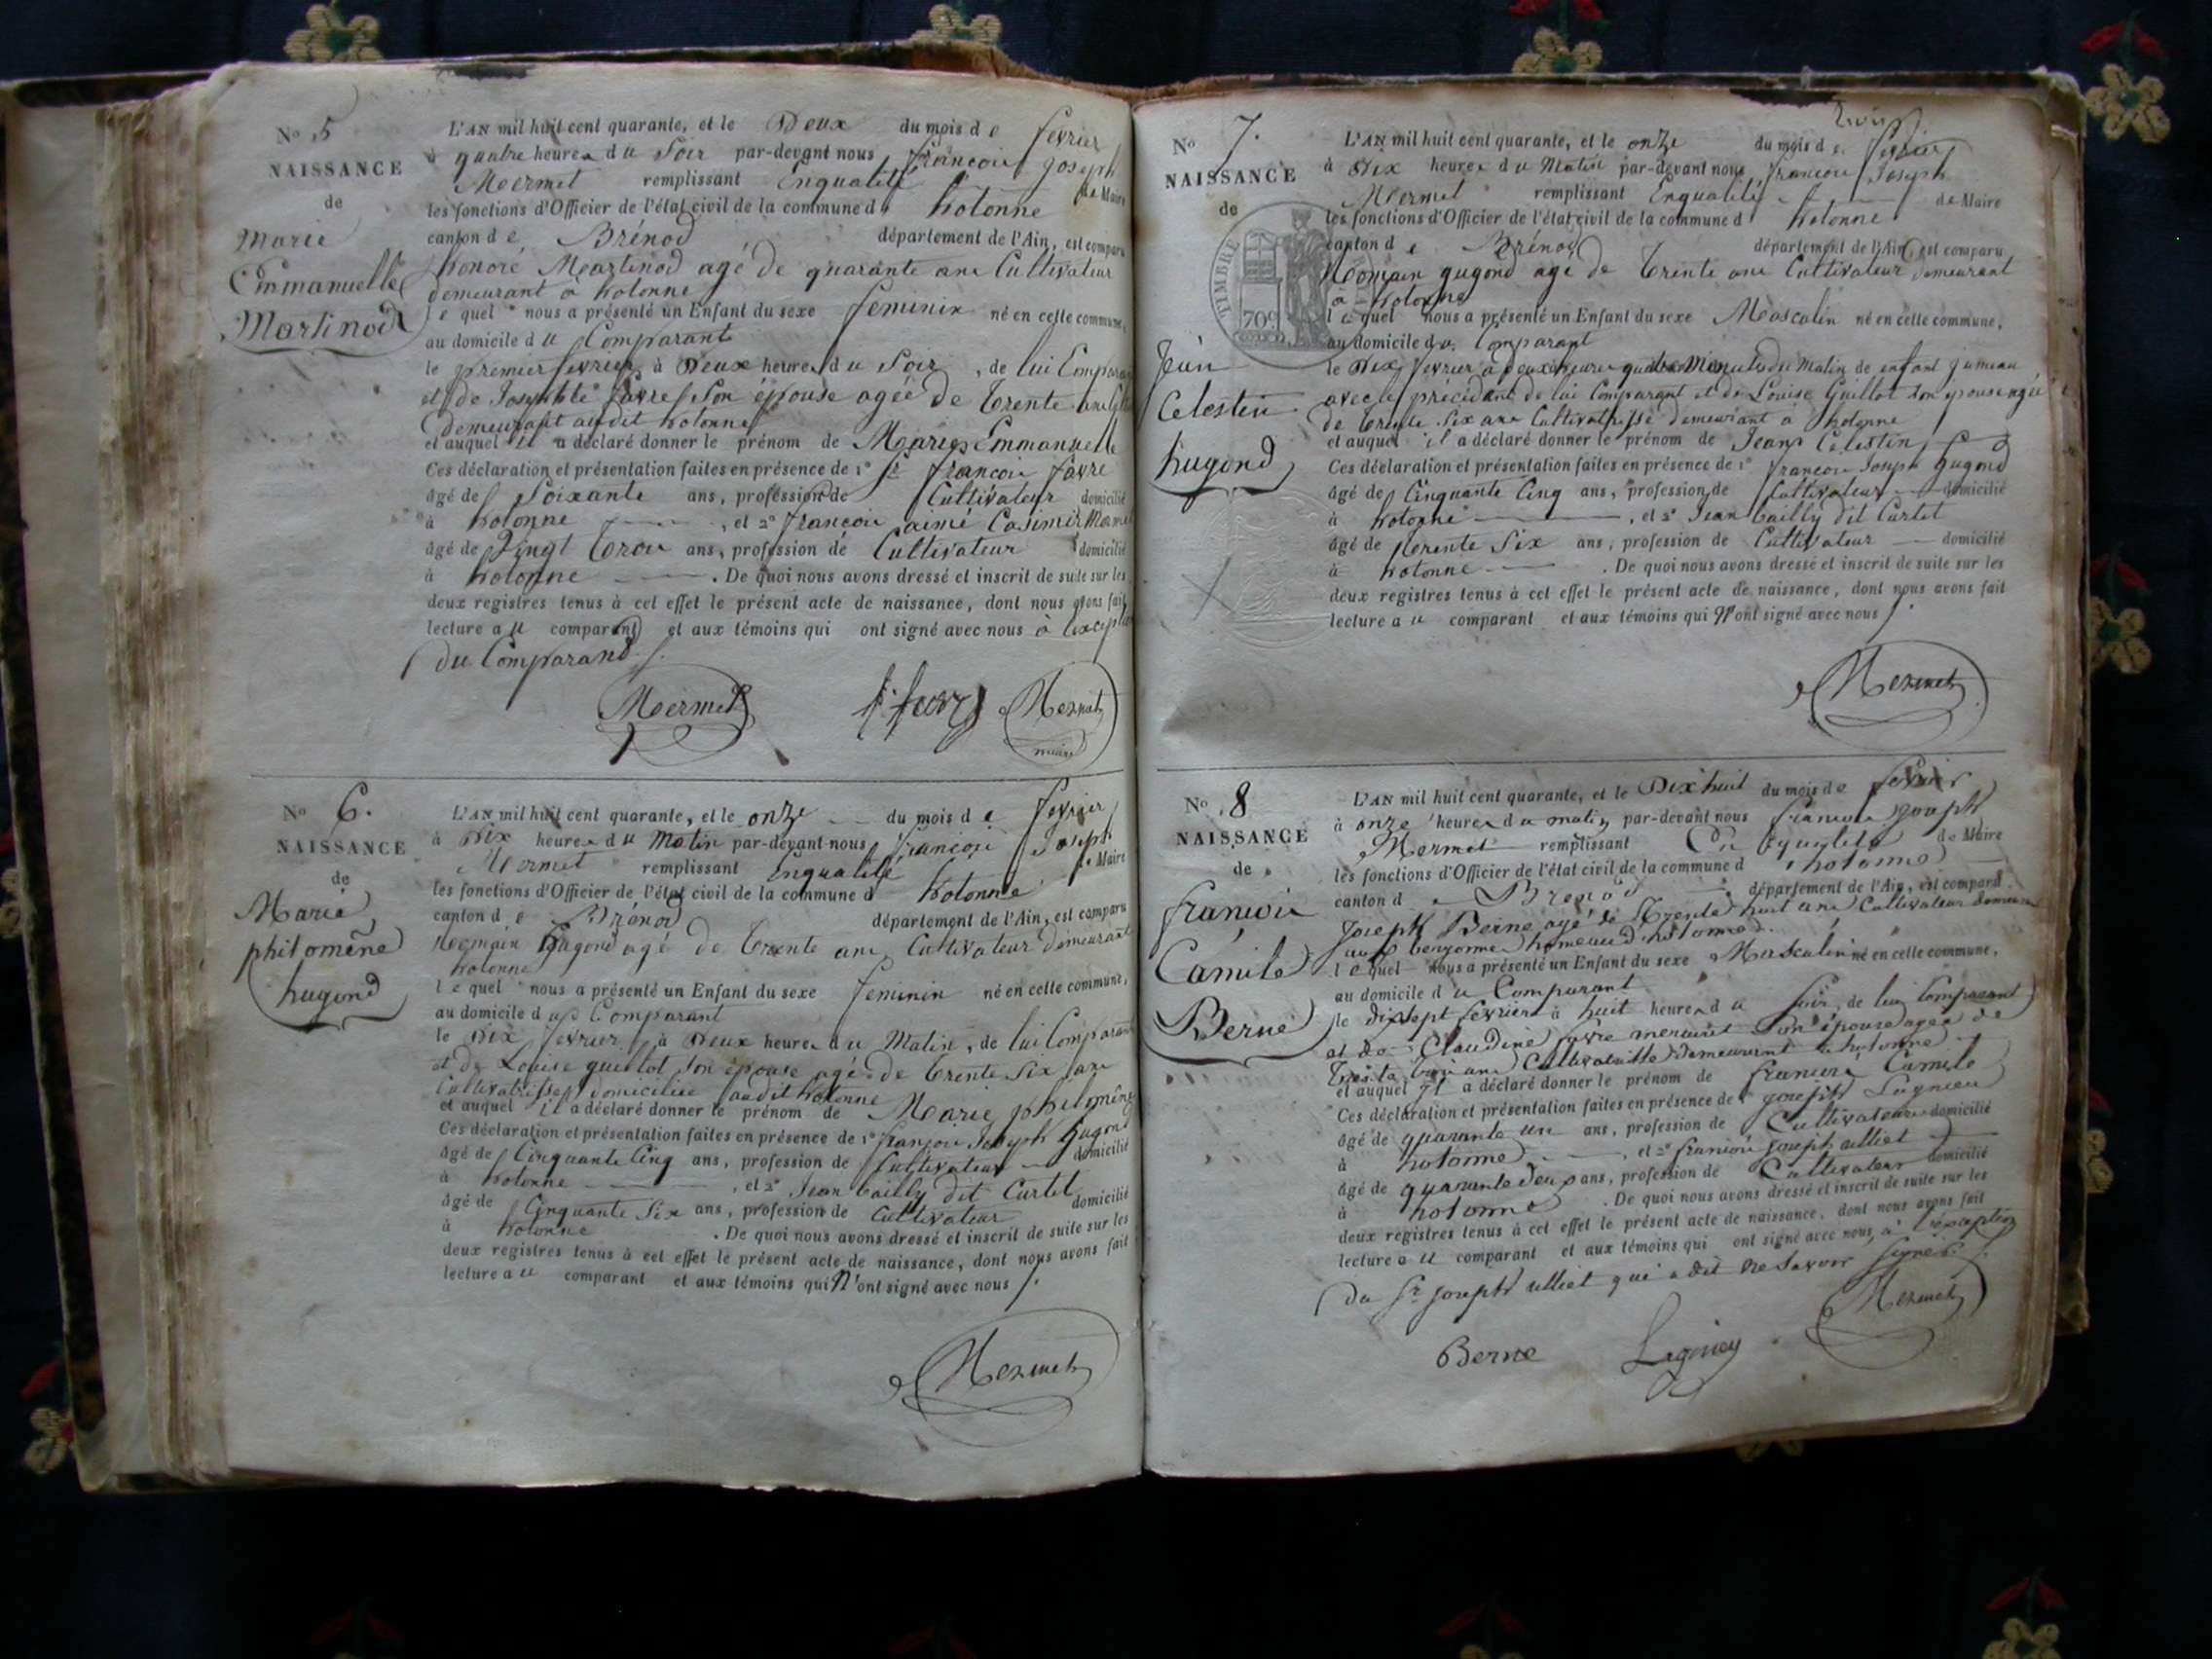 No 5
NAISSANCE
de
Marie
Emmanuelle
Martinod
L'AN mil huit cent quarante, et le Deux du mois de fevrier
à quatre heures du Soir par-devant nous françois joseph
Mermet remplissant Enqualité de Maire
les fonctions d'Officier de l'état civil de la commune d hotonne
canton de Brénod département de l'Ain, est comparu
honoré Martinod agé de quarante ans Cultivateur
demeurant à hotonne
lequel nous a présenté un Enfant du sexe feminin né en cette commune,
au domicile du Comparant
le premier fevrier à Deux heures du Soir, de lui Comparant
et de favre Son épouse agée de trente ans
demeurant audit hotonne
et auquel il a déclaré donner le prénom de Marie Emmanuelle
Ces déclaration et présentation faites en présence de 1° Sr françois favre
âgé de Soixante ans, profession de Cultivateur domicilié
à hotonne, et 2° françois aimé Casimir Mermet
âgé de Vingt trois ans, profession de Cultivateur domicilié
à hotonne. De quoi nous avons dressé et inscrit de suite sur les
deux registres tenus à cet effet le présent acte de naissance, dont nous avons fait
lecture au comparant et aux témoins qui ont signé avec nous à
du Comparand
Mermet f. favre Mermet
maire
No 6.
NAISSANCE
de
Marie
philomène
hugond
L'AN mil huit cent quarante, et le onze du mois de fevrier
à Dix heures du Matin par-devant nous françois Joseph
Mermet remplissant Enqualité de Maire
les fonctions d'Officier de l'état civil de la commune d hotonne
canton de Brénod département de l'Ain, est comparu
Romain hugond agé de trente ans Cultivateur demeurant
hotonne
lequel nous a présenté un Enfant du sexe feminin né en cette commune,
au domicile du Comparant
le Dix fevrier à Deux heures du Matin, de lui Comparant
et de Louise guillot Son épouse agé de trente Six ans
Cultivatrisse domiciliée audit hotonne
et auquel il a déclaré donner le prénom de Marie philomène
Ces déclaration et présentation faites en présence de 1° françois Joseph hugond
âgé de Cinquante Cinq ans, profession de Cultivateur domicilié
à hotonne, et 2° Jean bailly dit Curtet
âgé de Cinquante Six ans, profession de Cultivateur domicilié
à hotonne. De quoi nous avons dressé et inscrit de suite sur les
deux registres tenus à cet effet le présent acte de naissance, dont nous avons fait
lecture au comparant et aux témoins qui N'ont signé avec nous
Mermet
No 7.
NAISSANCE
de
TIMBRE
70c
Jean
Celestin
hugond
L'AN mil huit cent quarante, et le onze du mois de fevrier
à Dix heures du Matin par-devant nous françois Joseph
Mermet remplissant Enqualité de Maire
les fonctions d'Officier de l'état civil de la commune d hotonne
canton de Brénod département de l'Ain, est comparu
Romain hugond agé de trente ans Cultivateur demeurant
à hotonne
lequel nous a présenté un Enfant du sexe Masculin né en cette commune,
au domicile du Comparant
le Dix fevrier à deux heures quatre Minutes du Matin de enfant jumeau
avec le précédent de lui Comparant et de Louise Guillot Son épouse agée
de trente Six ans Cultivatrisse demeurant à hotonne
et auquel il a déclaré donner le prénom de Jean Celestin
Ces déclaration et présentation faites en présence de 1° françois Joseph hugond
âgé de Cinquante Cinq ans, profession de Cultivateur domicilié
à hotonne, et 2° Jean bailly dit Curtet
âgé de trente Six ans, profession de Cultivateur domicilié
à hotonne. De quoi nous avons dressé et inscrit de suite sur les
deux registres tenus à cet effet le présent acte de naissance, dont nous avons fait
lecture au comparant et aux témoins qui N'ont signé avec nous
Mermet
No 8
NAISSANCE
de
francois
Camile
Berne
L'AN mil huit cent quarante, et le Dix huit du mois de fevrier
à onze heures du matin par-devant nous francois joseph
Mermet remplissant En equalité de Maire
les fonctions d'Officier de l'état civil de la commune d hotonne
canton d Brenod département de l'Ain, est comparu
joseph Berne agé de trente huit ans Cultivateur demeurant
hameau d'hotonne
lequel nous a présenté un Enfant du sexe Masculin né en cette commune,
au domicile du Comparant
le dixsept fevrier à huit heures du Soir, de lui Comparant
et de Claudine favre Son épouse agée de
trente trois ans Cultivatrisse demeurant à hotonne
et auquel il a déclaré donner le prénom de francois Camile
Ces déclaration et présentation faites en présence de 1° joseph
âgé de quarante un ans, profession de Cultivateur domicilié
à hotonne, et 2° francois joseph ulliet
âgé de quarante deux ans, profession de Cultivateur domicilié
à hotonne. De quoi nous avons dressé et inscrit de suite sur les
deux registres tenus à cet effet le présent acte de naissance, dont nous avons fait
lecture au comparant et aux témoins qui ont signé avec nous à l'exception
du Sr joseph ulliet qui a dit ne savoir signer.
Berne Mermet